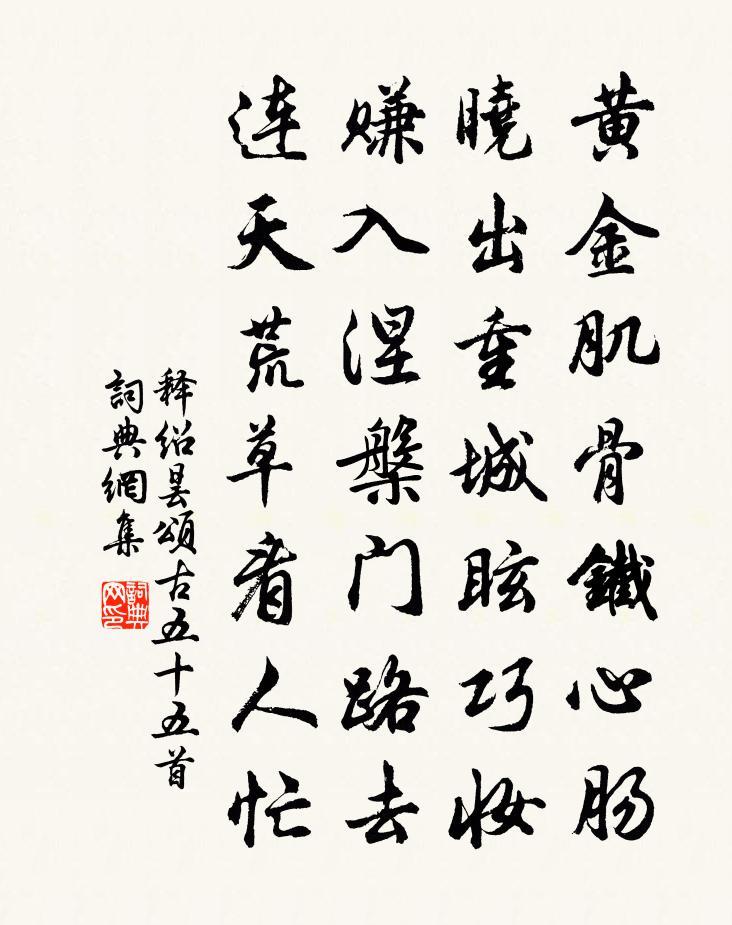 黄金肌骨鐵心肠
曉出重城眩巧妆
赚入涅槃门路去
连天荒草看人忙
释绍昙頌古五十五首
詞典網集
詞典网印